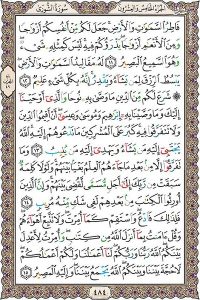 الجزء الخامس والعشرون سورة الشورى
فَاطِرُ ٱلسَّمَٰوَٰتِ وَٱلْأَرْضِ جَعَلَ لَكُم مِّنْ أَنفُسِكُمْ أَزْوَٰجًا
وَمِنَ ٱلْأَنْعَٰمِ أَزْوَٰجًا يَذْرَؤُكُمْ فِيهِ لَيْسَ كَمِثْلِهِۦ شَىْءٌ
وَهُوَ ٱلسَّمِيعُ ٱلْبَصِيرُ ١١ لَهُۥ مَقَالِيدُ ٱلسَّمَٰوَٰتِ وَٱلْأَرْضِ
يَبْسُطُ ٱلرِّزْقَ لِمَن يَشَآءُ وَيَقْدِرُ إِنَّهُۥ بِكُلِّ شَىْءٍ عَلِيمٌ ١٢
شَرَعَ لَكُم مِّنَ ٱلدِّينِ مَا وَصَّىٰ بِهِۦ نُوحًا وَٱلَّذِىٓ أَوْحَيْنَآ
إِلَيْكَ وَمَا وَصَّيْنَا بِهِۦٓ إِبْرَٰهِيمَ وَمُوسَىٰ وَعِيسَىٰٓ أَنْ أَقِيمُوا۟ ٱلدِّينَ
وَلَا تَتَفَرَّقُوا۟ فِيهِ كَبُرَ عَلَى ٱلْمُشْرِكِينَ مَا تَدْعُوهُمْ إِلَيْهِ ٱللَّهُ
يَجْتَبِىٓ إِلَيْهِ مَن يَشَآءُ وَيَهْدِىٓ إِلَيْهِ مَن يُنِيبُ ١٣ وَمَا
تَفَرَّقُوٓا۟ إِلَّا مِنۢ بَعْدِ مَا جَآءَهُمُ ٱلْعِلْمُ بَغْيًۢا بَيْنَهُمْ وَلَوْلَا كَلِمَةٌ
سَبَقَتْ مِن رَّبِّكَ إِلَىٰٓ أَجَلٍ مُّسَمًّى لَّقُضِىَ بَيْنَهُمْ وَإِنَّ ٱلَّذِينَ
أُورِثُوا۟ ٱلْكِتَٰبَ مِنۢ بَعْدِهِمْ لَفِى شَكٍّ مِّنْهُ مُرِيبٍ ١٤
فَلِذَٰلِكَ فَٱدْعُ وَٱسْتَقِمْ كَمَآ أُمِرْتَ وَلَا تَتَّبِعْ أَهْوَآءَهُمْ
وَقُلْ ءَامَنتُ بِمَآ أَنزَلَ ٱللَّهُ مِن كِتَٰبٍ وَأُمِرْتُ لِأَعْدِلَ
بَيْنَكُمُ ٱللَّهُ رَبُّنَا وَرَبُّكُمْ لَنَآ أَعْمَٰلُنَا وَلَكُمْ أَعْمَٰلُكُمْ
لَا حُجَّةَ بَيْنَنَا وَبَيْنَكُمُ ٱللَّهُ يَجْمَعُ بَيْنَنَا وَإِلَيْهِ ٱلْمَصِيرُ ١٥
٤٨٤